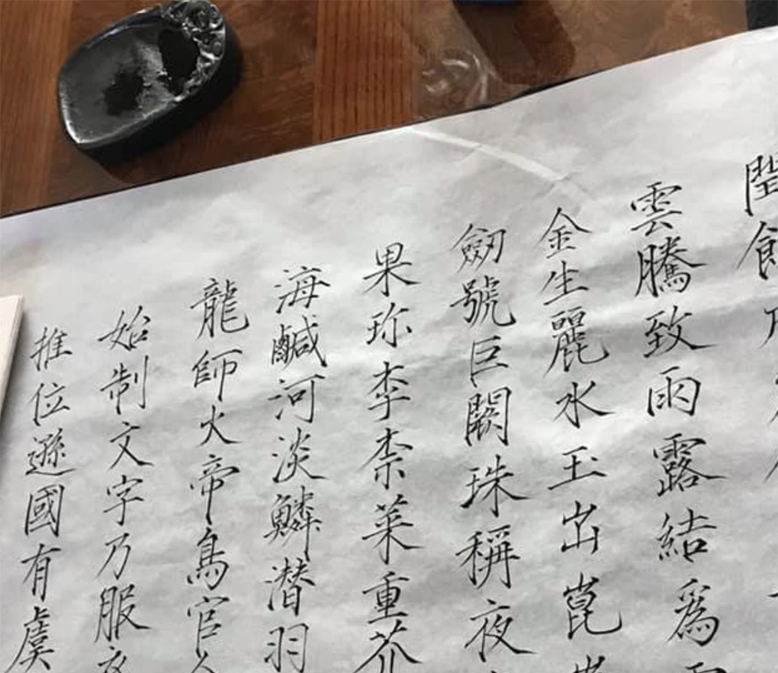 閏餘
雲騰致雨露結爲
金生麗水玉出崑
劒號巨闕珠稱夜
果珎李柰菜重芥
海鹹河淡鱗潜羽
龍師火帝鳥官人
始制文字乃服衣
推位遜國有虞